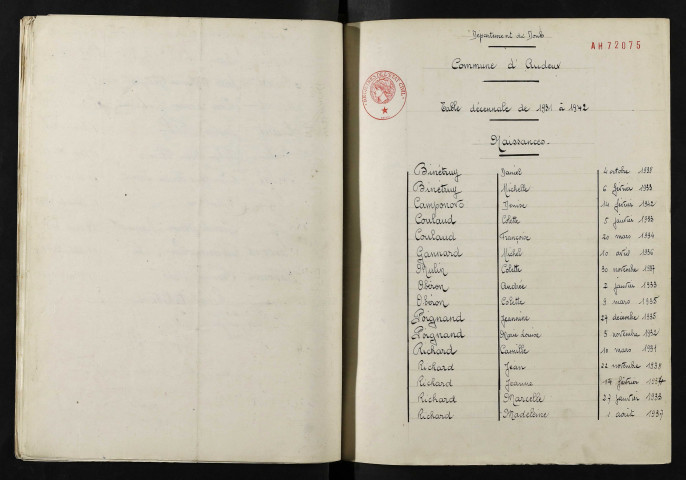 Département du Doubs
AH72075
Commune d'Audeux
Table décennale de 1931 à 1942
Naissances.
Binétruy Daniel 4 octobre 1938
Binétruy Michelle 6 février 1933
Camponovo Denise 14 février 1942
Coulaud Colette 5 janvier 1933
Coulaud Françoise 20 mars 1934
Gannard Michel 10 avril 1936
Mulin Colette 30 novembre 1937
Obéron Andrée 2 janvier 1933
Obéron Colette 9 mars 1935
Poignand Jeannine 27 décembre 1935
Poignand Marie Louise 3 novembre 1932
Richard Camille 10 mars 1931
Richard Jean 22 novembre 1938
Richard Jeanne 14 février 1934
Richard Marcelle 27 janvier 1933
Richard Madeleine 1 août 1937